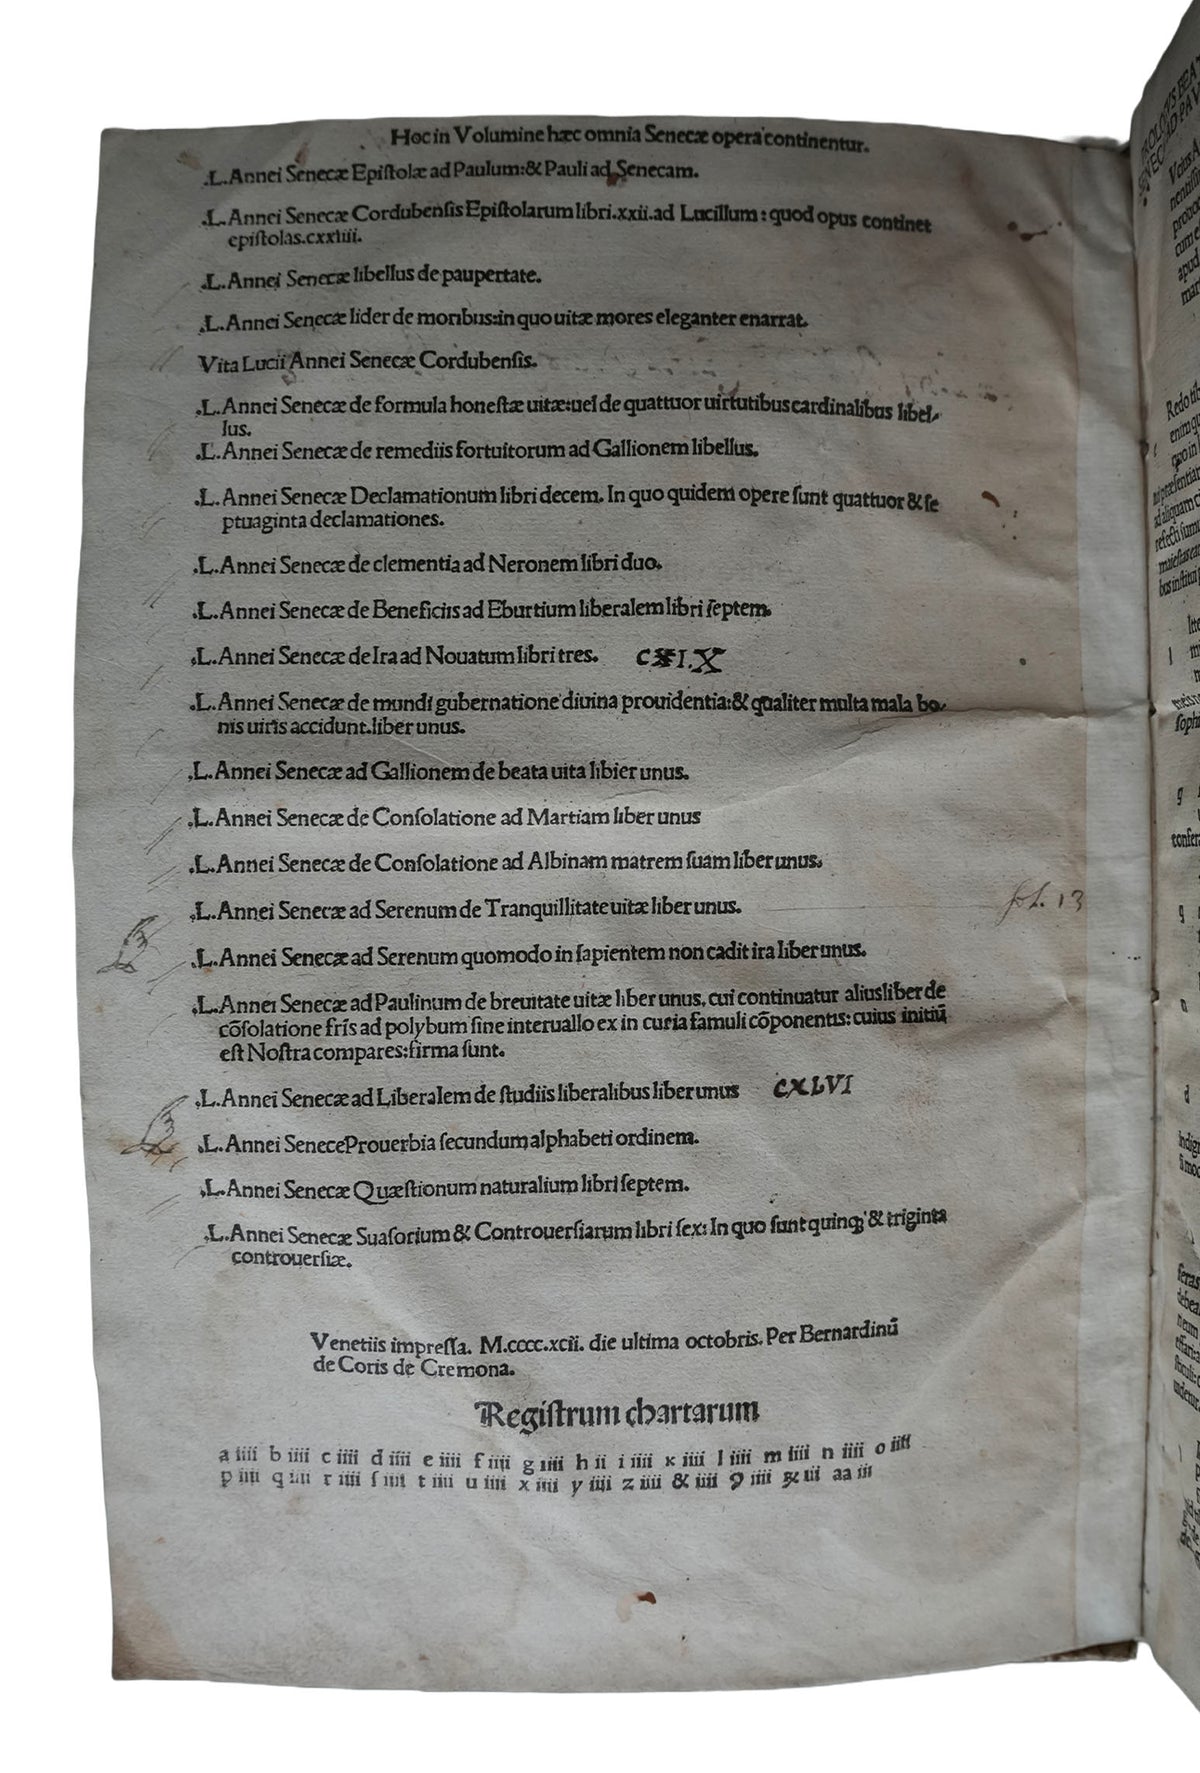 Hoc in Volumine hæc omnia Senecæ opera continentur.
.L. Annei Senecæ Epiſtolæ ad Paulum:& Pauli ad Senecam.
.L. Annei Senecæ Cordubenſis Epiſtolarum libri.xxii.ad Lucillum: quod opus continet
epiſtolas.cxxiiii.
.L. Annei Senecæ libellus de paupertate.
.L. Annei Senecæ lider de moribus:in quo uitæ mores eleganter enarrat.
Vita Lucii Annei Senecæ Cordubenſis.
.L. Annei Senecæ de formula honeſtæ uitæ:uel de quattuor uirtutibus cardinalibus libel-
lus.
.L. Annei Senecæ de remediis fortuitorum ad Gallionem libellus.
.L. Annei Senecæ Declamationum libri decem. In quo quidem opere ſunt quattuor & ſe
ptuaginta declamationes.
.L. Annei Senecæ de clementia ad Neronem libri duo.
.L. Annei Senecæ de Beneficiis ad Eburtium liberalem libri ſeptem.
.L. Annei Senecæ de Ira ad Nouatum libri tres.
.L. Annei Senecæ de mundi gubernatione diuina prouidentia:& qualiter multa mala bo-
nis uiris accidunt.liber unus.
.L. Annei Senecæ ad Gallionem de beata uita libier unus.
.L. Annei Senecæ de Conſolatione ad Martiam liber unus
.L. Annei Senecæ de Conſolatione ad Albinam matrem ſuam liber unus.
.L. Annei Senecæ ad Serenum de Tranquillitate uitæ liber unus. fol. 13
.L. Annei Senecæ ad Serenum quomodo in ſapientem non cadit ira liber unus.
.L. Annei Senecæ ad Paulinum de breuitate uitæ liber unus, cui continuatur alius liber de
cōſolatione frīs ad polybum ſine interuallo ex in curia famuli cōponentis: cuius initiū
eſt Noſtra compares:firma ſunt.
.L. Annei Senecæ ad Liberalem de ſtudiis liberalibus liber unus CXLVI
.L. Annei Senece Prouerbia ſecundum alphabeti ordinem.
.L. Annei Senecæ Quæſtionum naturalium libri ſeptem.
.L. Annei Senecæ Suaſorium & Controuerſiarum libri ſex: In quo ſunt quinq; & triginta
controuerſiæ.
Venetiis impreſſa. M.cccc.xcii. die ultima octobris. Per Bernardinū
de Coris de Cremona.
Regiſtrum chartarum
a iiii b iiii c iiii d iiii e iiii f iiii g iiii h ii i iiii k iiii l iiii m iiii n iiii o iiii
p iiii q iiii r iiii ſ iiii t iiii u iiii x iiii y iiii z iiii & iiii ꝯ iiii ꝝ iii aa iii